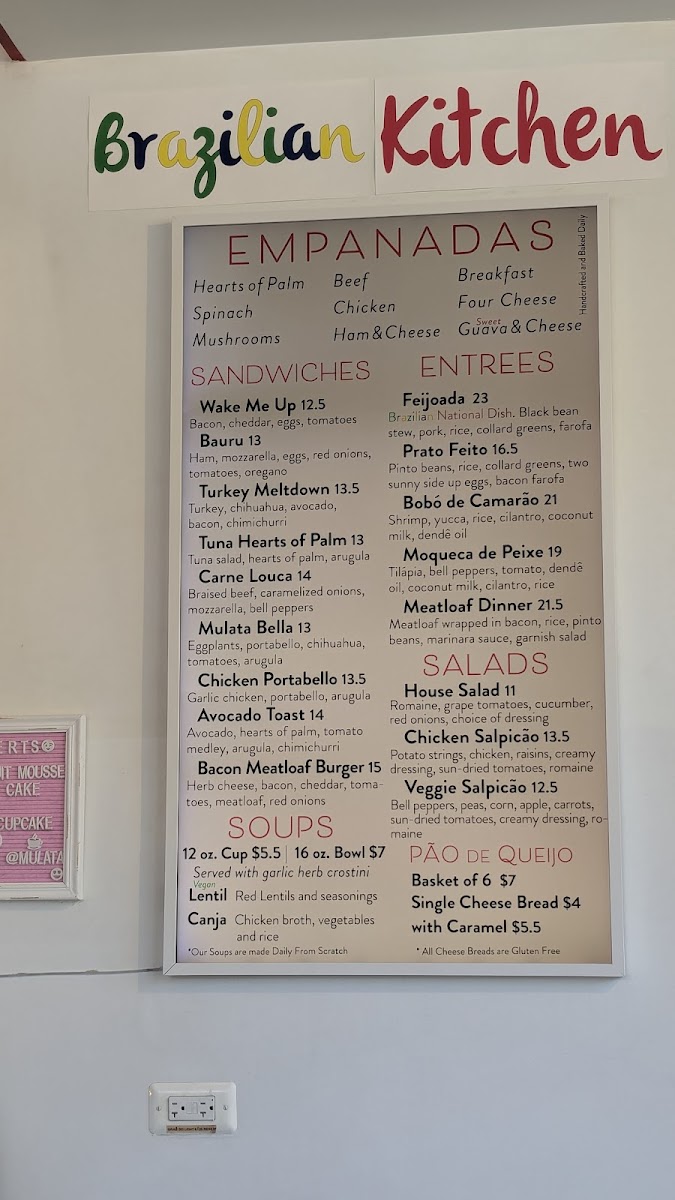 Brazilian Kitchen
EMPANADAS
Handcrafted and Baked Daily
Hearts of Palm
Spinach
Mushrooms
Beef
Chicken
Ham & Cheese
Breakfast
Four Cheese
Sweet
Guava & Cheese
SANDWICHES
Wake Me Up 12.5
Bacon, cheddar, eggs, tomatoes
Bauru 13
Ham, mozzarella, eggs, red onions,
tomatoes, oregano
Turkey Meltdown 13.5
Turkey, chihuahua, avocado,
bacon, chimichurri
Tuna Hearts of Palm 13
Tuna salad, hearts of palm, arugula
Carne Louca 14
Braised beef, caramelized onions,
mozzarella, bell peppers
Mulata Bella 13
Eggplants, portabello, chihuahua,
tomatoes, arugula
Chicken Portabello 13.5
Garlic chicken, portabello, arugula
Avocado Toast 14
Avocado, hearts of palm, tomato
medley, arugula, chimichurri
Bacon Meatloaf Burger 15
Herb cheese, bacon, cheddar, toma-
toes, meatloaf, red onions
SOUPS
12 oz. Cup $5.5 | 16 oz. Bowl $7
Served with garlic herb crostini
Vegan
Lentil Red Lentils and seasonings
Canja Chicken broth, vegetables
and rice
*Our Soups are made Daily From Scratch
ENTREES
Feijoada 23
Brazilian National Dish. Black bean
stew, pork, rice, collard greens, farofa
Prato Feito 16.5
Pinto beans, rice, collard greens, two
sunny side up eggs, bacon farofa
Bobó de Camarão 21
Shrimp, yucca, rice, cilantro, coconut
milk, dendê oil
Moqueca de Peixe 19
Tilápia, bell peppers, tomato, dendê
oil, coconut milk, cilantro, rice
Meatloaf Dinner 21.5
Meatloaf wrapped in bacon, rice, pinto
beans, marinara sauce, garnish salad
SALADS
House Salad 11
Romaine, grape tomatoes, cucumber,
red onions, choice of dressing
Chicken Salpicão 13.5
Potato strings, chicken, raisins, creamy
dressing, sun-dried tomatoes, romaine
Veggie Salpicão 12.5
Bell peppers, peas, corn, apple, carrots,
sun-dried tomatoes, creamy dressing, ro-
maine
PÃO DE QUEIJO
Basket of 6 $7
Single Cheese Bread $4
with Caramel $5.5
* All Cheese Breads are Gluten Free
ERTS
IT MOUSSE
CAKE
CUPCAKE
@MULATA